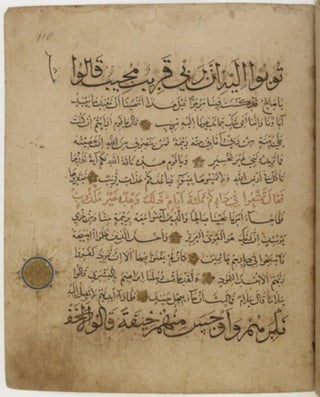 110
توبوا اليه ان ربي قريب مجيب قالوا
يا صالح قد كنت فينا مرجوا قبل هذا اتنهينا ان نعبد ما يعبد
آباؤنا واننا لفي شك مما تدعونا اليه مريب قال يا قوم ارايتم ان كنت
على بينة من ربي وآتاني منه رحمة فمن ينصرني من الله ان عصيته
فما تزيدونني غير تخسير ويا قوم هذه ناقة الله لكم آية فذروها
تاكل في ارض الله ولا تمسوها بسوء فياخذكم عذاب قريب فعقروها
فقال تمتعوا في داركم ثلثة ايام ذلك وعد غير مكذوب
فلما جاء امرنا نجينا صالحا والذين آمنوا معه برحمة منا ومن خزي
يومئذ ان ربك هو القوي العزيز واخذ الذين ظلموا الصيحة
فاصبحوا في ديارهم جاثمين كان لم يغنوا فيها الا ان ثمود كفروا
ربهم الا بعدا لثمود ولقد جاءت رسلنا ابراهيم بالبشرى قالوا
سلاما قال سلام فما لبث ان جاء بعجل حنيذ فلما راى ايديهم لا تصل اليه
نكرهم واوجس منهم خيفة قالوا لا تخف